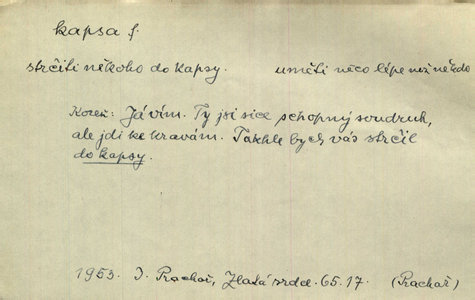 kapsa f.
strčiti někoho do kapsy. uměti něco lépe než někdo
Kozek: Já vím. Ty jsi sice schopný soudruh,
ale jdi ke kravám. Takhle bych vás strčil
do kapsy.
1953. I. Prachař, Zlatá srdce. 65.17. (Prachař)